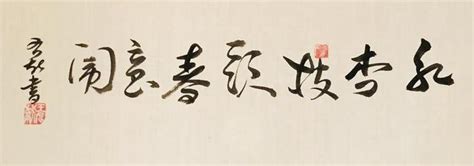 红杏枝头春意闹
书